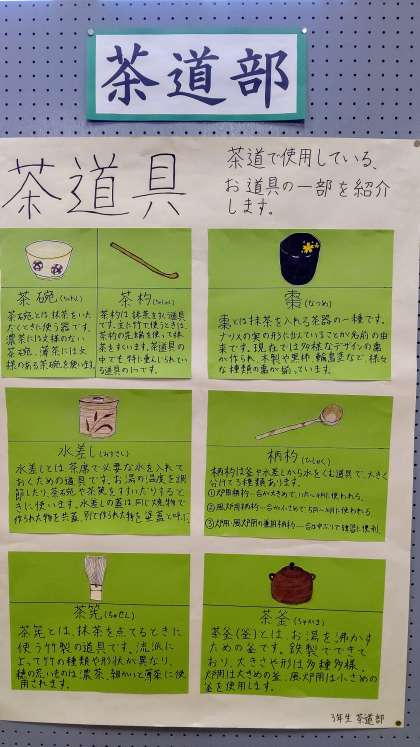 茶道部
茶道具
茶道で使用している、
お道具の一部を紹介
します。
茶碗(ちゃわん)
茶碗とは抹茶をいた
だくときに使う器です。
濃茶には文様のない
茶碗、薄茶には文
様のある茶碗を使います。
茶杓(ちゃしゃく)
茶杓は抹茶をすくう道具
です。主に竹で使うときは、
茶杓の先端を使って抹
茶をすくいます。茶道具の
中でも特に重んじられてい
る道具の1つです。
棗(なつめ)
棗とは抹茶を入れる茶器の一種です。
ナツメの実の形に似ていることが名前の由
来です。現在では多様なデザインの棗
が作られ、木製や
な種類の棗が揃っています。
水差し(みずさし)
水差しとは、茶席で必要な水を入れて
おくための道具です。お湯の温度を調
節したり、茶碗や茶筅をすすいだりすると
きに使います。水差しの蓋は同じ焼物で
作られた物を共蓋、別で作られた物を塗蓋と呼ぶ。
柄杓(ひしゃく)
柄杓は釜や水差しから水をくむ道具で、大きく
分けて3種類あります。
①炉用柄杓…合が大きめで、11月~4月に使われる。
②風炉用柄杓…合が小さめで5月~10月に使われる
③炉用・風炉用の兼用柄杓…合は中ぶりで練習に便利。
茶筅(ちゃせん)
茶筅とは、抹茶を点てるときに
使う竹製の道具です。流派に
よって竹の種類や形状が異なり、
穂の荒いものは濃茶、細かいと薄茶に使
用されます。
茶釜(ちゃがま)
茶釜(釜)とは、お湯を沸かす
ための釜です。鉄製でできて
おり、大きさや形は多種多様。
炉用は大きめの釜、風炉用は小さめの
釜を使用します。
3年生 茶道部